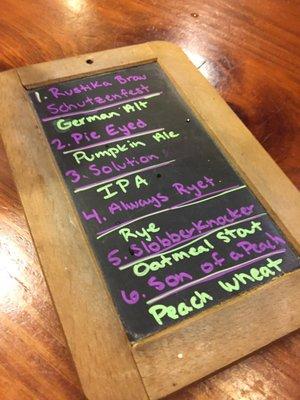 1. Rustika Brau
Schutzenfest
German Alt
2. Pie Eyed
Pumpkin Ale
3. Solution
IPA
4. Always Ryet
Rye
5. Slobberknocker
Oatmeal Stout
6. Son of a Peach
Peach Wheat